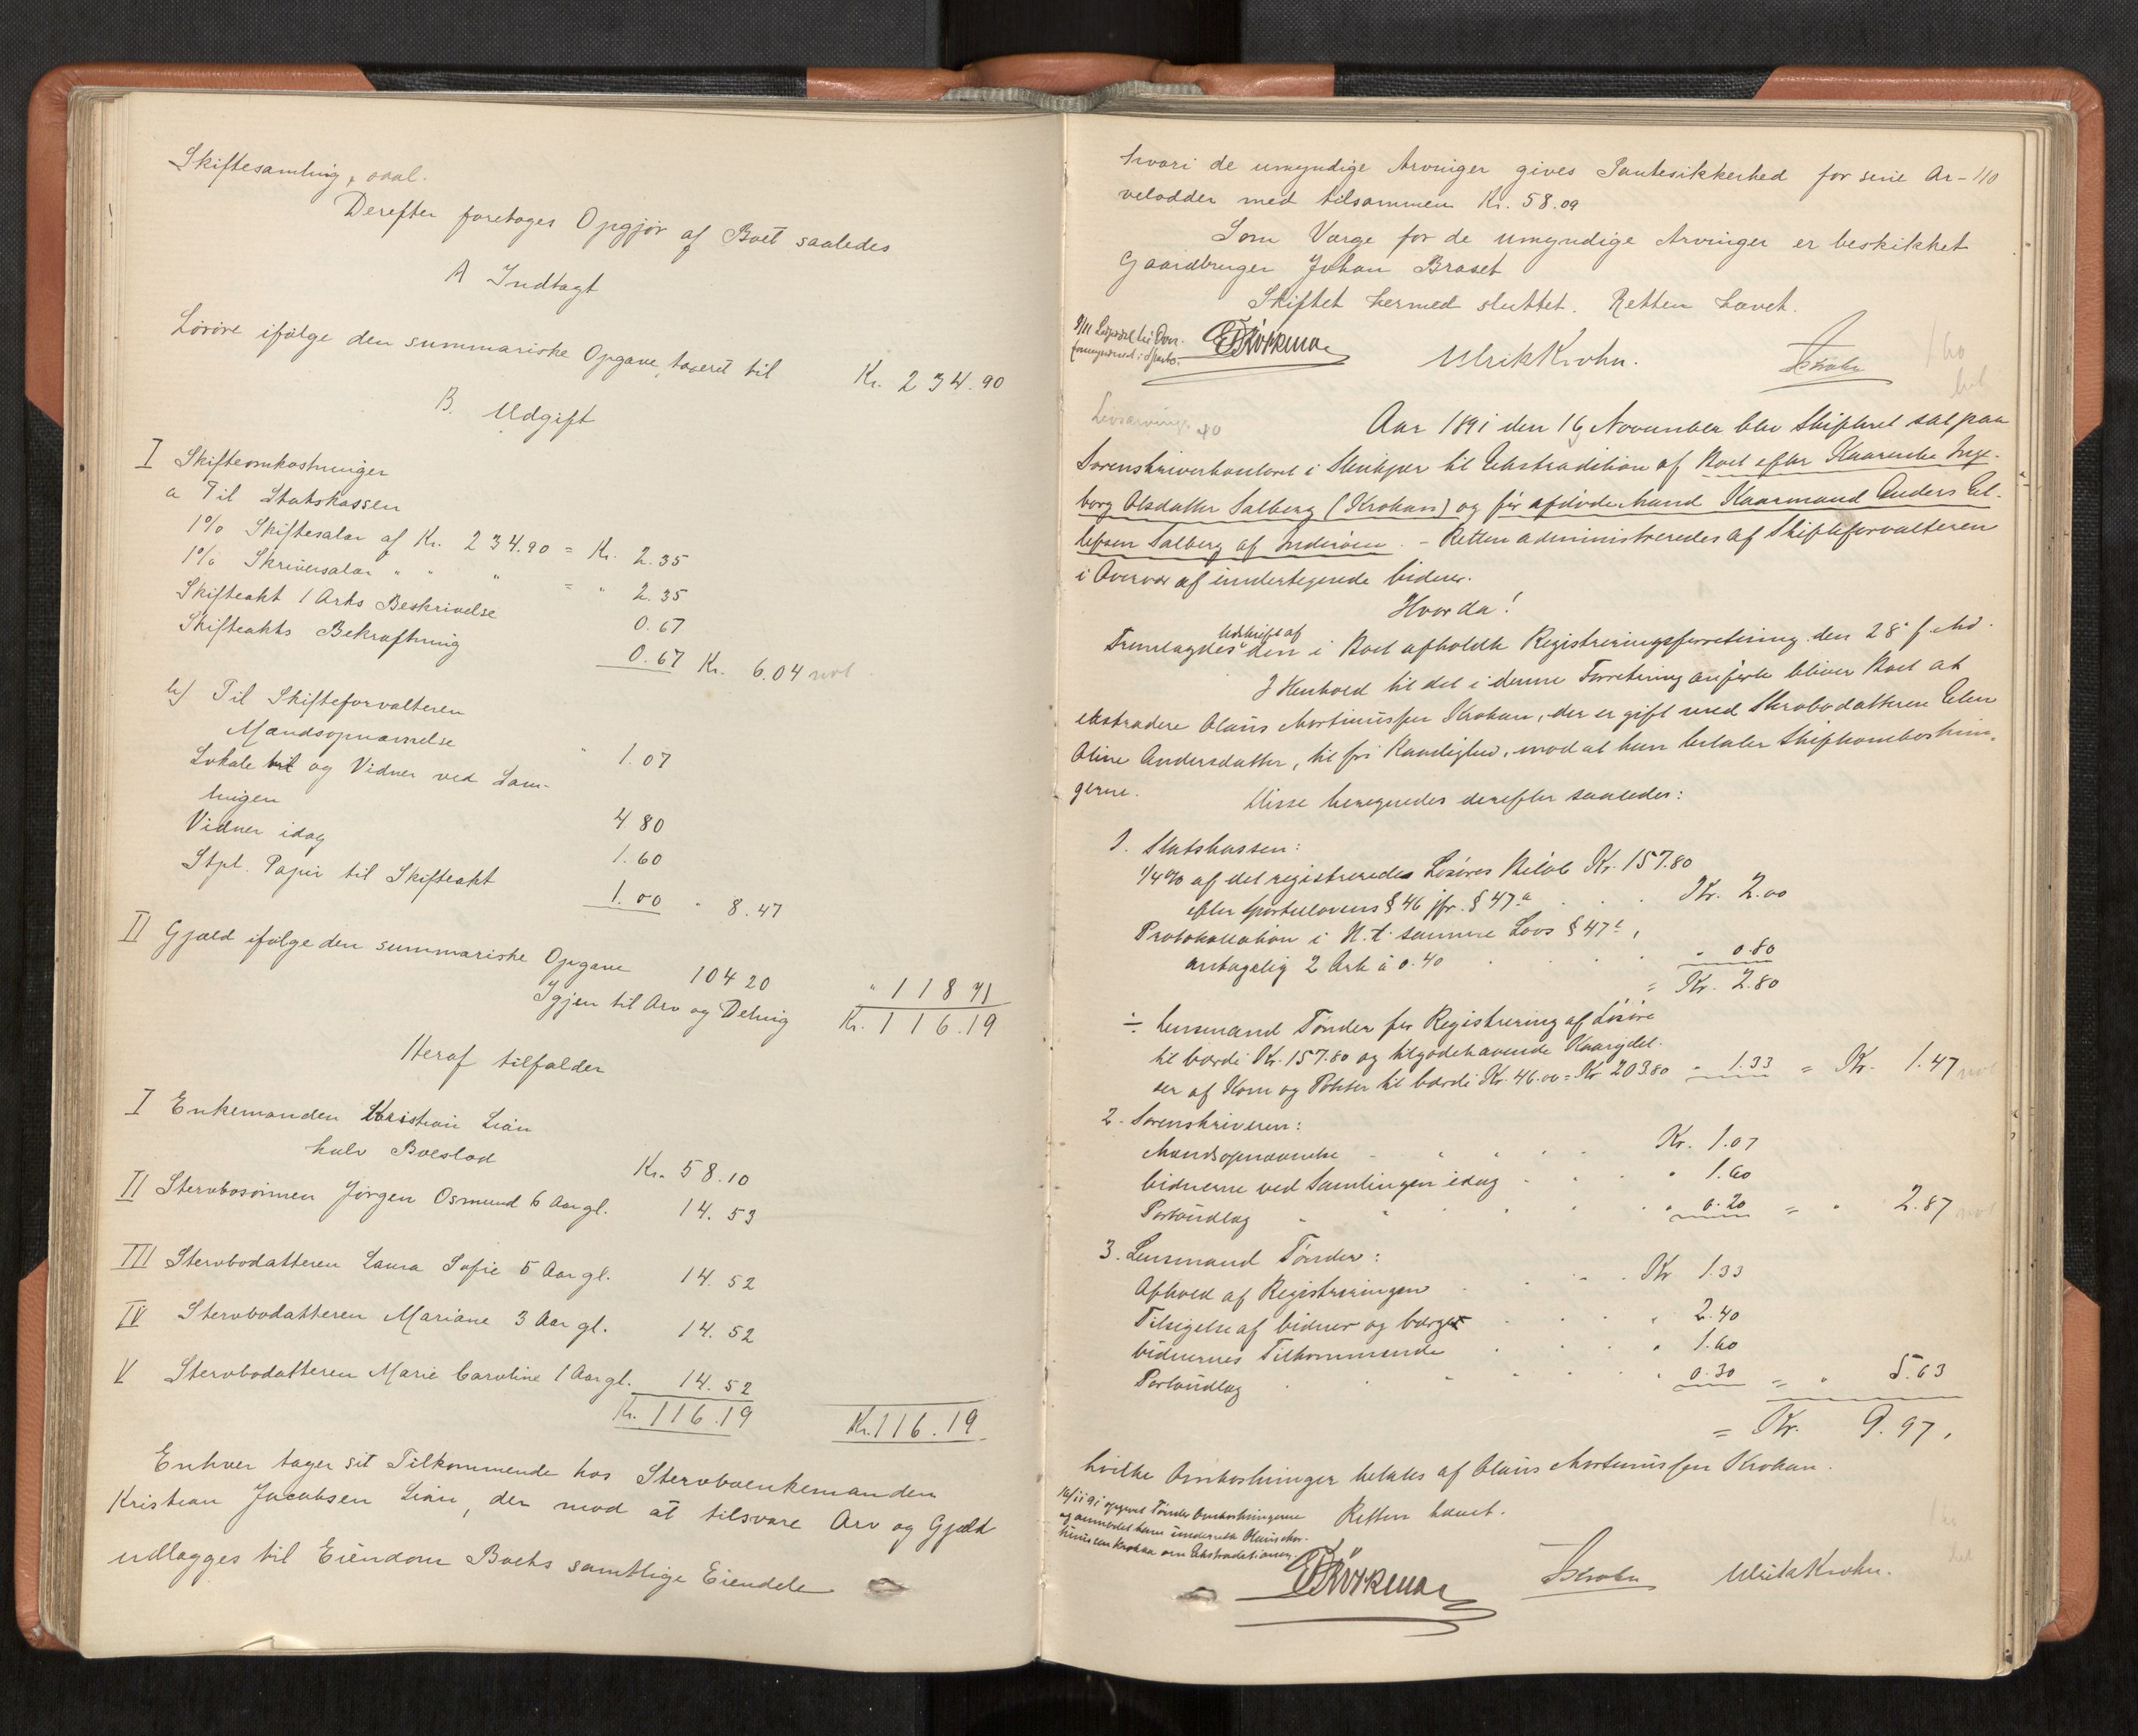 Skiftesamling,
Derefter foretages Opgjør af Boet saaledes
A Indtægt
Løsøre ifølge den summariske Opgave, taxeret til Kr. 234.90
B. Udgift
I Skifteomkostninger
a Til Statskassen
1% Skiftesalær af Kr. 234.90 = Kr. 2.35
1% Skriversalær " " " = " 2.35
Skifteakt 1 Arks Beskrivelse 0.67
Skifteakts Bekræftning 0.67 Kr. 6.04
b) Til Skifteforvalteren
Mandsopnævnelse " 1.07
Lokale og Vidner ved Sam-
lingen 4 80
Vidner idag 1.60
Stpl. Papir til Skifteakt 1.00 " 8.47
II Gjæld ifølge den summariske Opgave 104 20 " 118 71
Igjen til Arv og Deling Kr. 116.19
Heraf tilfalder
I Enkemanden Kristian Lian
halv Boeslod Kr. 58.10
II Stervbosønnen Jørgen Osmund 6 Aar gl. 14.53
III Stervbodatteren Laura Sofie 5 Aar gl. 14.52
IV Stervbodatteren Mariane 3 Aar gl. 14.52
V Stervbodatteren Marie Caroline 1 Aar gl. 14.52
Kr. 116.19 Kr. 116.19
Enhver tager sit Tilkommende hos Stervboenkemanden
Kristian Jacobsen Lian, der mod at tilsvare Arv og Gjæld
udlægges til Eiendom Boets samtlige Eiendele
hvori de umyndige Arvinger gives Pantesikkerhed for sine Ar- 110
velodder med tilsammen Kr. 58.09
Som Værge for de umyndige Arvinger er beskikket
Gaardbruger Johan Braset
Skiftet hermed sluttet. Retten hævet.
Ulrik Krohn.
Aar 1891 den 16 November blev Skifteret sat paa
Sorenskriverkontoret i Stenkjær til Ekstradition af Boet efter Kaarenke Inge-
borg Olsdatter Salberg (Krokan) og før afdøde Mand Kaarmand Anders El-
lefsen Salberg af Inderøen. - Retten administreredes af Skifteforvalteren
i Overvær af undertegnede Vidner.
Hvorda!
Fremlagdes Udskrift af den i Boet afholdte Registreringsforretning den 28 f. Md.
I Henhold til det i denne Forretning anførte bliver Boet at
ekstradere Olaus Mortinussen Krokan, der er gift med Stervbodatteren Elen
Oline Andersdatter, til fri Raadighed, mod at han betaler Skifteomkostnin-
gerne.
Disse beregnedes derefter saaledes:
1. Statskassen:
1/4% af det registrerede Løsøres Beløb Kr. 157.80
efter Sportellovens § 46 jfr. § 47 a Kr. 2.00
Protokollation i H. t. samme Lovs § 47
antagelig 2 Ark á 0.40 " 0.80
= Kr. 2.80
÷ Lensmand Tønder for Registrering af Løsøre
til Værdi Kr. 157.80 og tilgodehavende Kaarydel-
ser af Korn og Poteter til Værdi Kr. 46.00 = Kr. 203.80 " 1.33 = Kr. 1.47
2. Sorenskriveren:
Mandsopnævnelse Kr. 1.07
Vidnerne ved Samlingen idag " 1.60
Portoudlæg " 0.20 = " 2.87
3. Lensmand Tønder:
Afhold af Registreringen Kr 1.33
Tilsigelse af Vidner og Værger " 2.40
Vidnernes Tilkommende " 1.60
Portoudlæg " 0.30 = " 5.63
= Kr. 9.97.
hvilke Omkostninger betales af Olaus Mortinussen Krokan.
Retten hævet.
16/11 91 opgivet Tønder Omkostningerne
og anmodet ham underrette Olaus Mor-
tinussen Krokan om Ekstraditionen.
Ulrik Krohn.